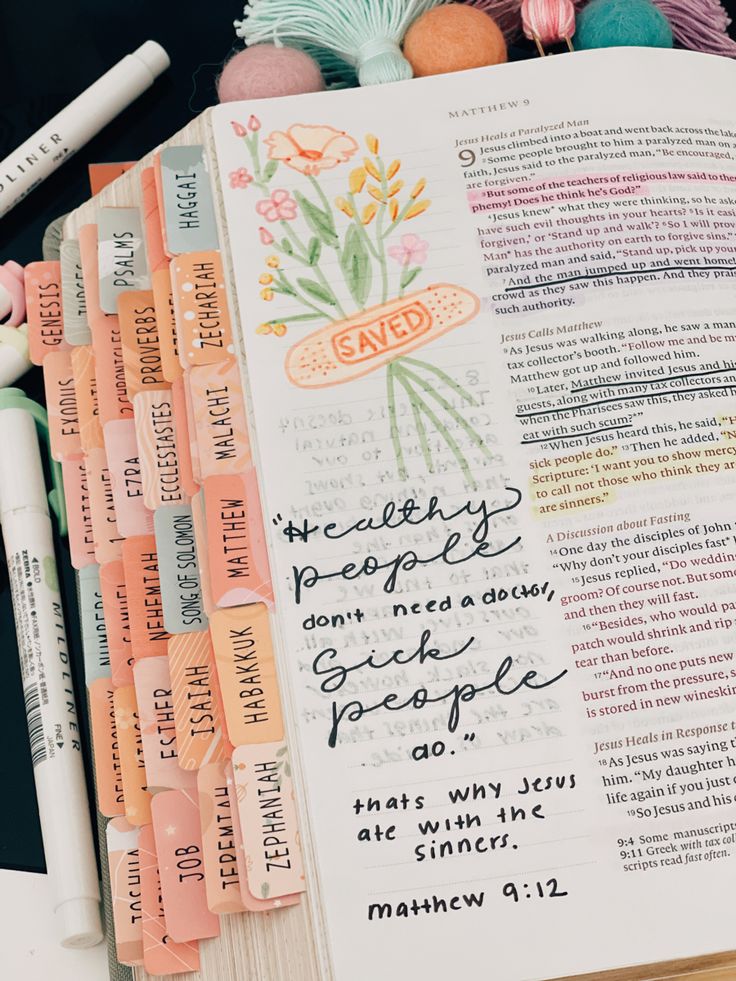 MATTHEW 9
Jesus Heals a Paralyzed Man
9 Jesus climbed into a boat and went back across the lake
2Some people brought to him a paralyzed man on a
faith, Jesus said to the paralyzed man, "Be encouraged,
are forgiven."
3But some of the teachers of religious law said to them
phemy! Does he think he's God?"
4Jesus knew* what they were thinking, so he aske
have such evil thoughts in your hearts? 5Is it easi
forgiven,' or 'Stand up and walk'? 6So I will prove
Man* has the authority on earth to forgive sins."
paralyzed man and said, "Stand up, pick up you
7And the man jumped up and went home!
crowd as they saw this happen. And they prai
such authority.
Jesus Calls Matthew
9As Jesus was walking along, he saw a man
tax collector's booth. "Follow me and be m
Matthew got up and followed him.
10Later, Matthew invited Jesus and his
guests, along with many tax collectors an
when the Pharisees saw this, they asked
eat with such scum?*"
12When Jesus heard this, he said, "H
sick people do." 13Then he added, "N
Scripture: 'I want you to show mercy
to call not those who think they ar
are sinners."
A Discussion about Fasting
14One day the disciples of John
"Why don't your disciples fast*
15Jesus replied, "Do wedding
groom? Of course not. But som
and then they will fast.
16"Besides, who would pa
patch would shrink and rip
tear than before.
17"And no one puts new
burst from the pressure, s
is stored in new wineskin
Jesus Heals in Response t
18As Jesus was saying th
him. "My daughter h
life again if you just c
19So Jesus and his
9:4 Some manuscripts
9:11 Greek with tax col
scripts read fast often.
SAVED
"Healthy
people
don't need a doctor,
Sick
people
do."
thats why Jesus
ate with the
sinners.
matthew 9:12
HAGGAI
PSALMS
ZECHARIAH
GENESIS
JUDGES
PROVERBS
2 CHRONICLES
MALACHI
EXODUS
RUTH
ECCLESIASTES
EZRA
1 SAMUEL
LEVITICUS
MATTHEW
SONG OF SOLOMON
NEHEMIAH
NUMBERS
2 SAMUEL
HABAKKUK
ISAIAH
ESTHER
DEUTERONOMY
ZEPHANIAH
JEREMIAH
JOB
JOSHUA
KINGS
DLINER
ZEBRA
BOLD
MILDLINER
FINE
JAPAN